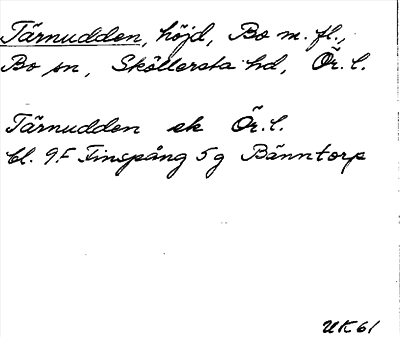 Tärnudden, höjd, Bo m. fl.,
Bo sn, Sköllersta hd, Ör. l.
Tärnudden ek Ör. l.
bl. 9F Finspång 5g Bänntorp
UK 61